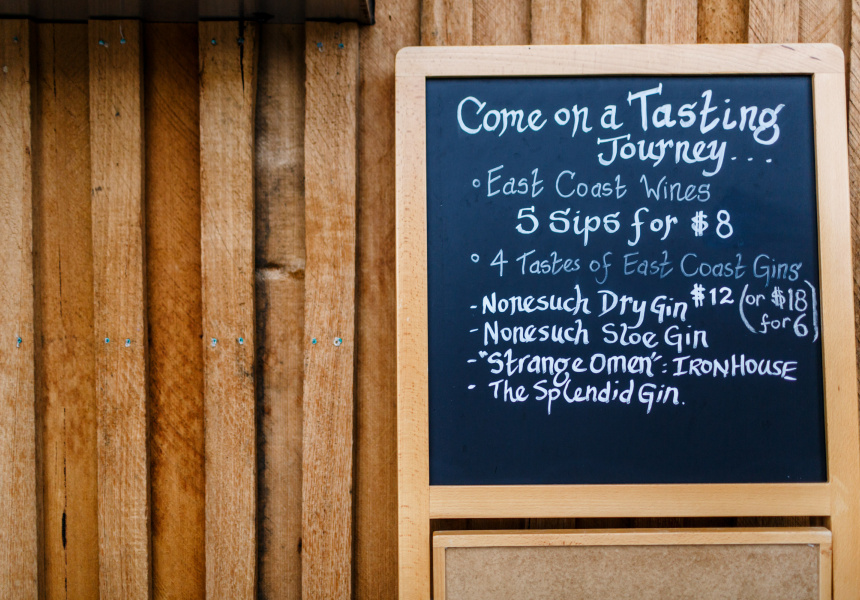 Come on a Tasting
Journey...
° East Coast Wines
5 Sips for $8
° 4 Tastes of East Coast Gins
- Nonesuch Dry Gin $12 (or $18
for 6)
- Nonesuch Sloe Gin
- "Strange Omen": IRONHOUSE
- The Splendid Gin.